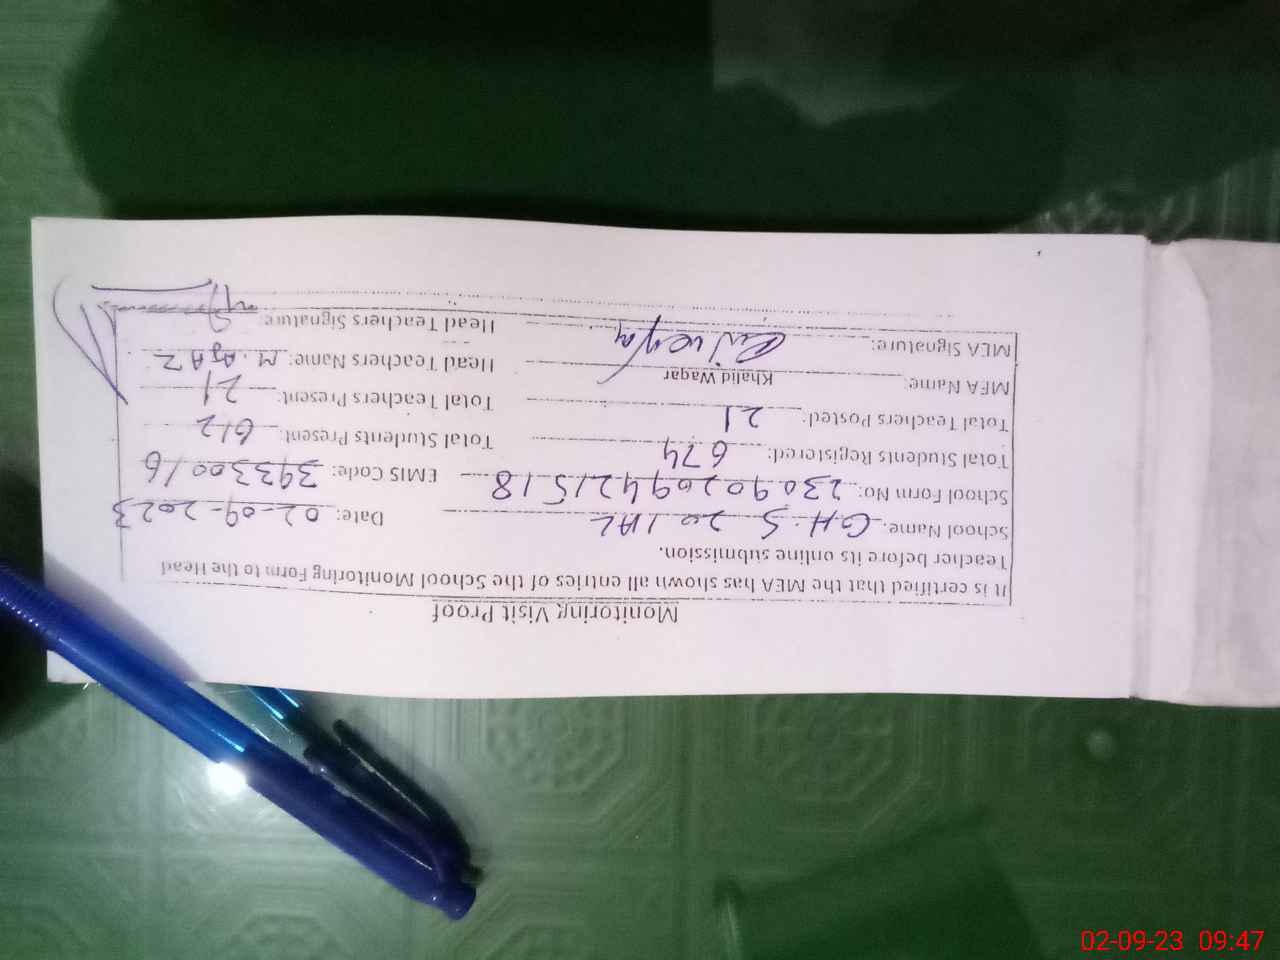 Monitoring Visit Proof
It is certified that the MEA has shown all entries of the School Monitoring Form to the Head
Teacher before its online submission.
School Name: G.H.S 20 1AL Date: 02-09-2023
School Form No: 230902094215 18 EMIS Code: 39330016
Total Students Registered: 674 Total Students Present: 612
Total Teachers Posted: 21 Total Teachers Present: 21
MEA Name: Khalid Waqar Head Teachers Name: M. AJAZ
MEA Signature: Head Teachers Signature:
02-09-23 09:47